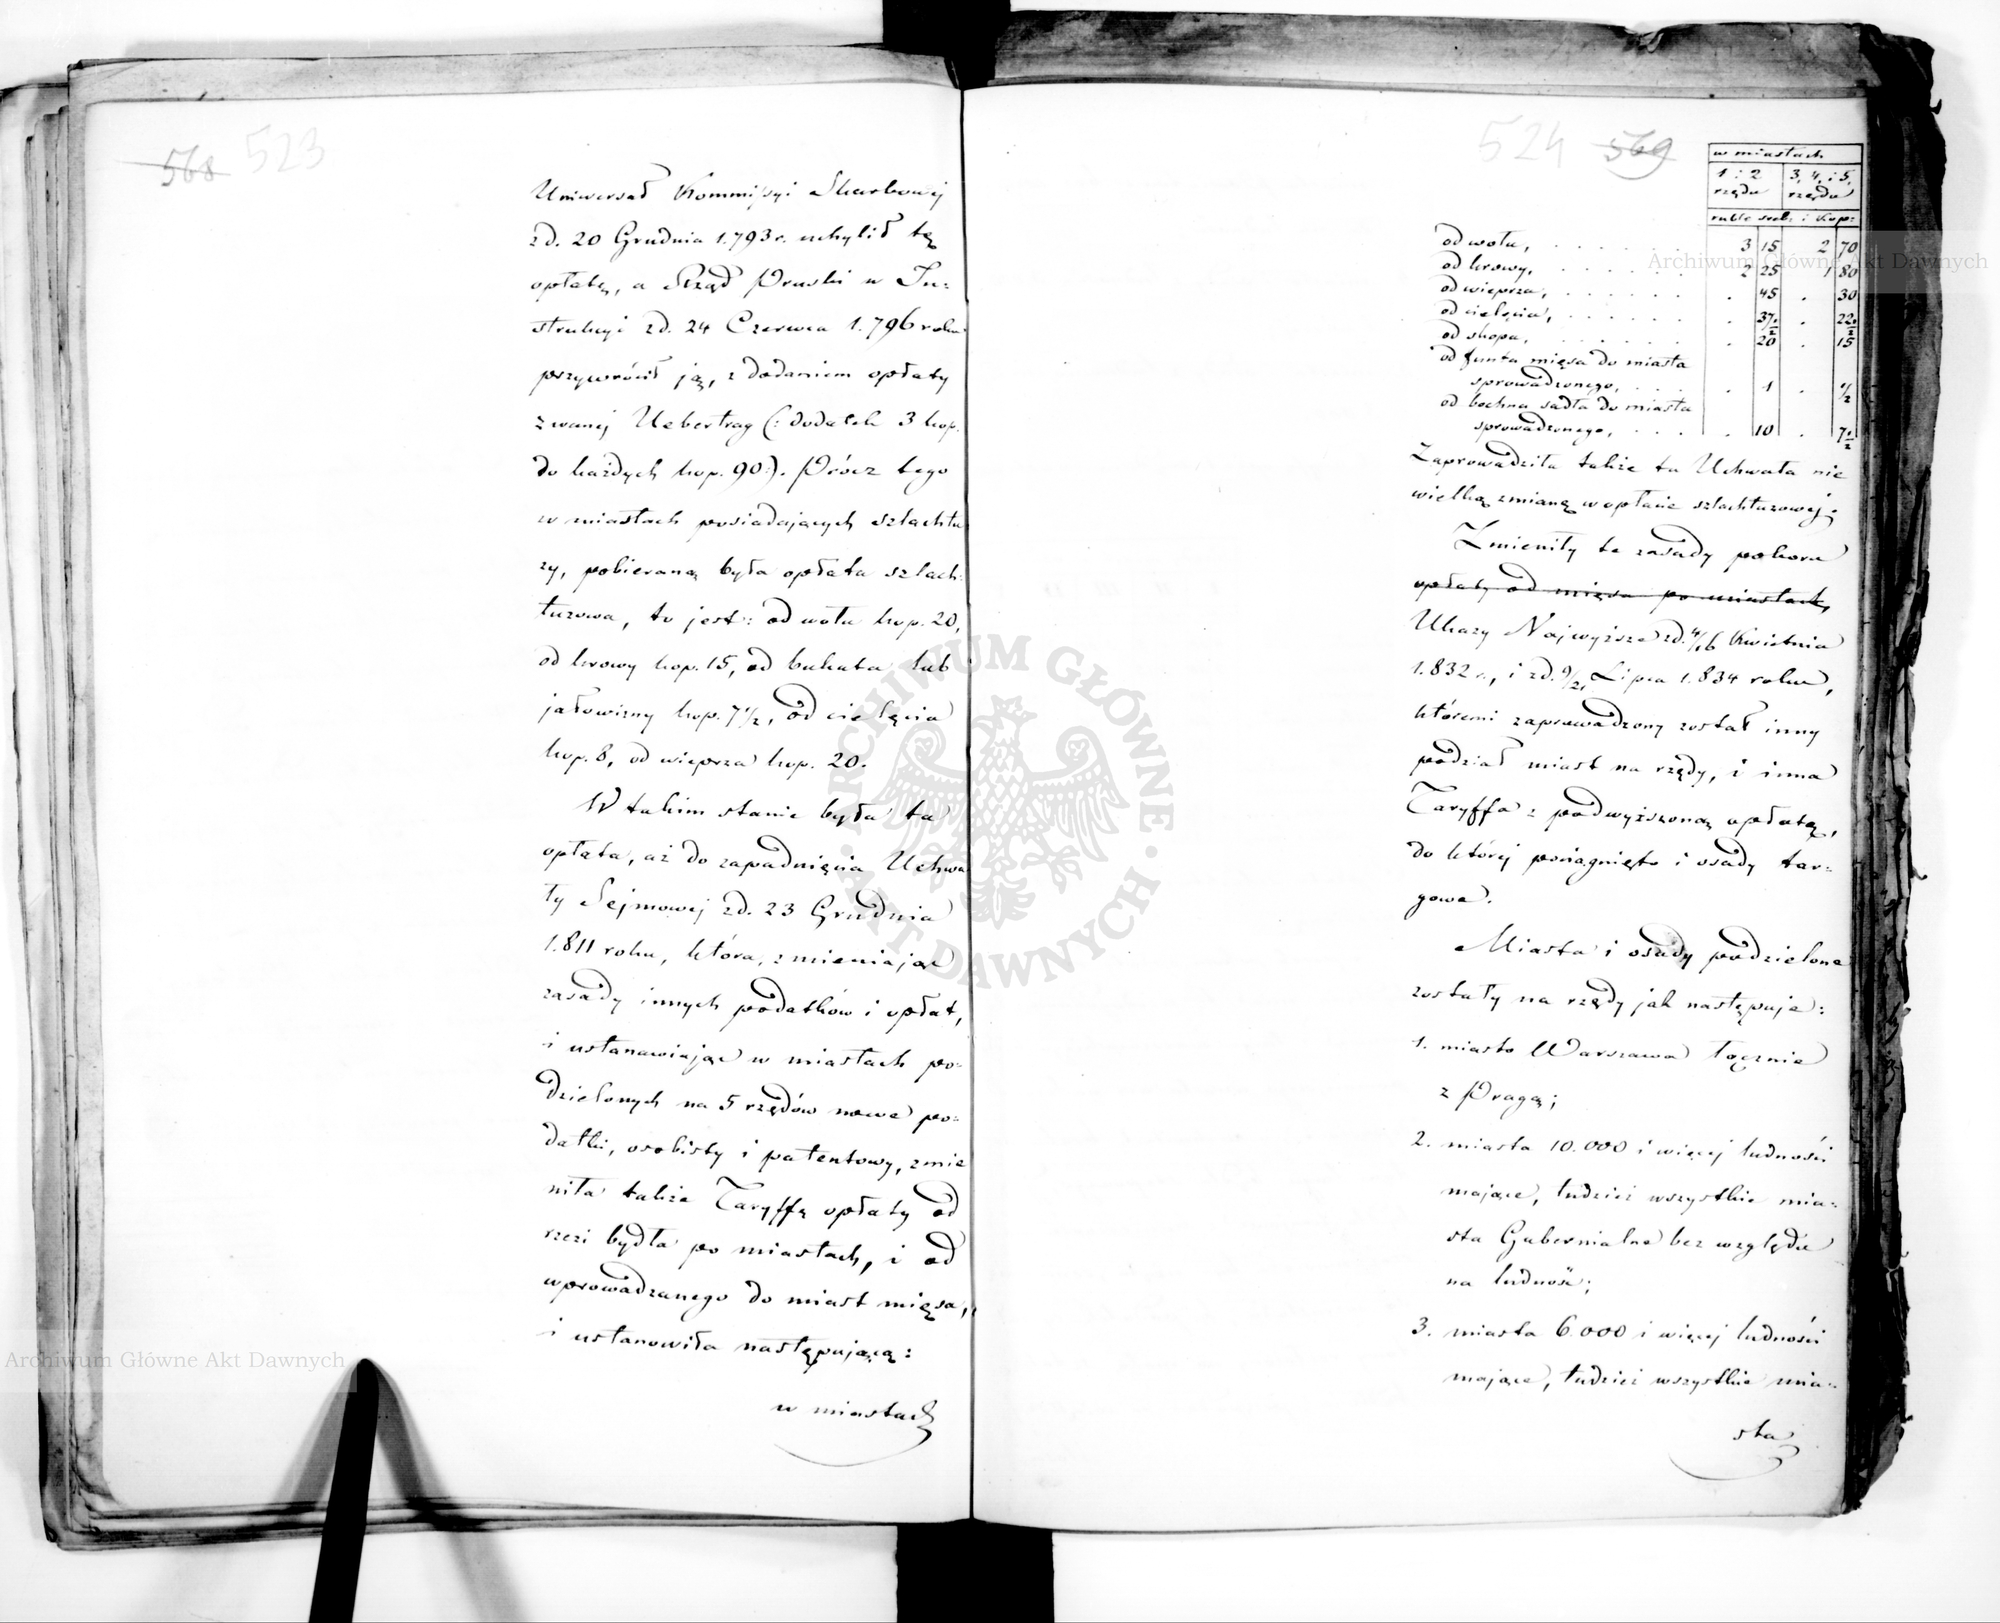 568 523
Uniwersał Kommissyi Skarbowej
zd. 20 Grudnia 1.793 r. uchylił tę
opłatę, a Rząd Pruski w In=
strukcyi zd. 24 Czerwca 1.796 roku
przywrócił ją, z dodaniem opłaty
zwanej Uebertrag (: dodatek 3 kop.
do każdych kop. 90:). Prócz tego
w miastach posiadających szlachtu
zy, pobieraną była opłata szlach=
tuzowa, to jest: od wołu kop. 20,
od krowy kop. 15, od bukata lub
jałowizny kop. 7 1/2, od cielęcia
kop. 8, od wieprza kop. 20.
W takim stanie była ta
opłata, aż do zapadnięcia Uchwa
ły Sejmowej zd. 23 Grudnia
1.811 roku, która, zmieniając
zasady innych podatków i opłat,
i ustanawiając w miastach po=
dzielonych na 5 rzędów nowe po=
datki, osobisty i patentowy, zmie
niła także Taryffę opłaty od
rzezi bydła po miastach, i od
wprowadzanego do miast mięsa,
i ustanowiła następującą:
w miastach
524 569
w miastach
1 i 2 3, 4, i 5,
rzędu rzędu
ruble sreb: i kop:
od wołu, . . . . . 3 15 2 70
od krowy, . . . . . 2 25 1 80
od wieprza, . . . . . . 45 . 30
od cielęcia, . . . . . . 37 1/2 . 22 1/2
od skopa, . . . . . . 20 . 15
od funta mięsa do miasta
sprowadzonego, . . . . 1 . 1/2
od bochna sadła do miasta
sprowadzonego, . . . . 10 . 7 1/2
Zaprowadziła także ta Uchwała nie
wielką zmianę w opłacie szlachtuzowej.
Zmieniły te zasady poboru
opłaty od mięsa po miastach,
Ukazy Najwyższe zd. 4/16 Kwietnia
1.832 r., i zd. 9/21 Lipca 1.834 roku,
któremi zaprowadzony został inny
podział miast na rzędy, i inna
Taryffa z podwyższoną opłatą,
do której pociągnięto i osady tar=
gowe.
Miasta i osady podzielone
zostały na rzędy jak następuje:
1. miasto Warszawa łącznie
z Pragą;
2. miasta 10.000 i więcej ludności
mające, tudzież wszystkie mia=
sta Gubernialne bez względu
na ludność;
3. miasta 6.000 i więcej ludności
mające, tudzież wszystkie mia=
sta
Archiwum Główne Akt Dawnych
Archiwum Główne Akt Dawnych
ARCHIWUM GŁÓWNE AKT DAWNYCH